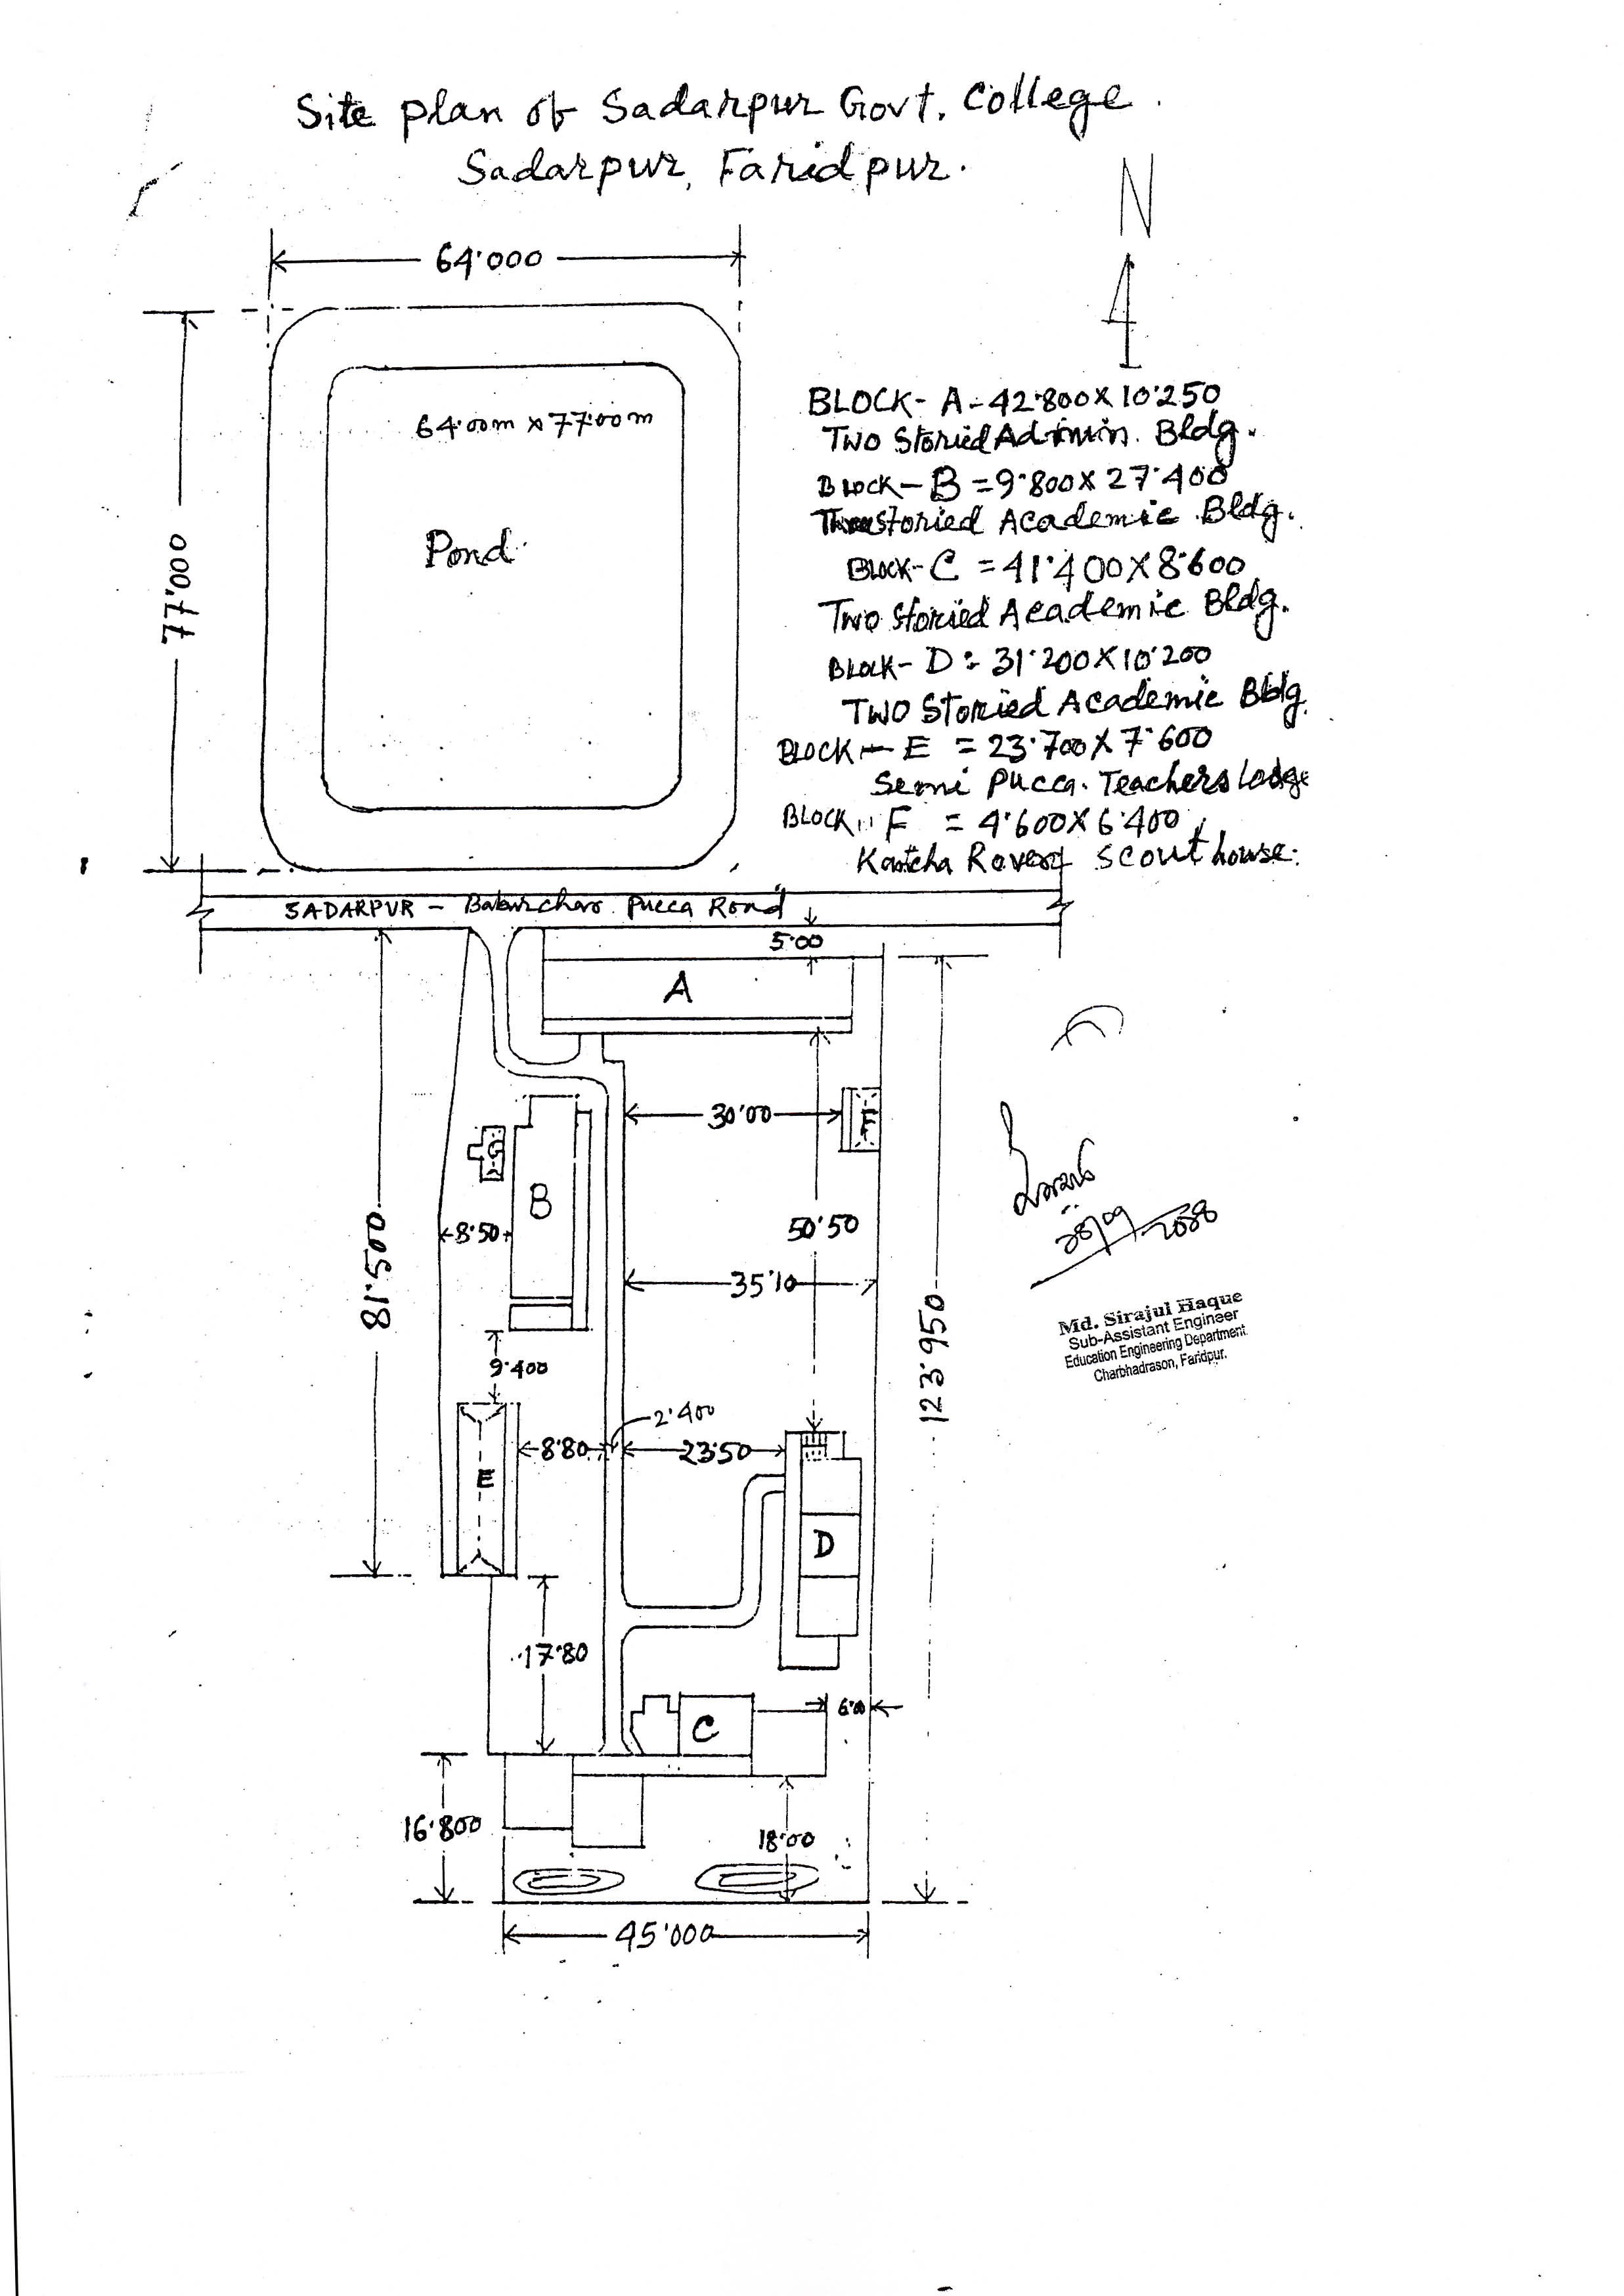 Site plan of Sadarpur Govt. College.
Sadarpur, Faridpur.
N
64'000
77'000
64'00m x 77'00m
Pond
BLOCK- A - 42'800 X 10'250
Two Storied Admin. Bldg.
BLOCK - B = 9'800 X 27'400
Storied Academic Bldg.
BLOCK- C = 41'400 X 8'600
Two Storied Academic Bldg.
BLOCK- D :- 31'200 X 10'200
TWO Storied Academic Bldg.
BLOCK - E = 23'700 X 7'600
Semi Pucca. Teachers Lodge
BLOCK " F = 4'600 X 6'400
Katcha Rover Scout house.
SADARPUR - Pucca Road
5'00
A
30'00
F
G
B
8'50
50'50
81'500
35'10
123'950
9'400
2'400
8'80
23'50
E
D
17'80
6'00
C
16'800
18'00
45'000
Md. Sirajul Haque
Sub-Assistant Engineer
Education Engineering Department
Charbhadrason, Faridpur.